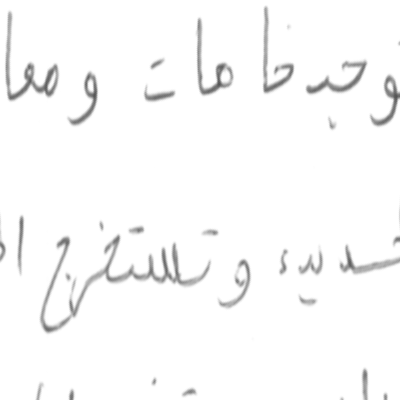 توجد خامات ومعا
حديد، وتستخرج ال